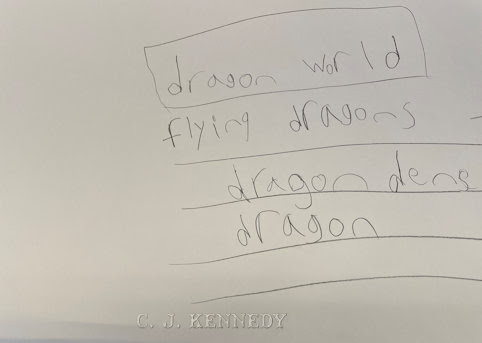 dragon world
flying dragons
dragon dens
dragon
C. J. KENNEDY